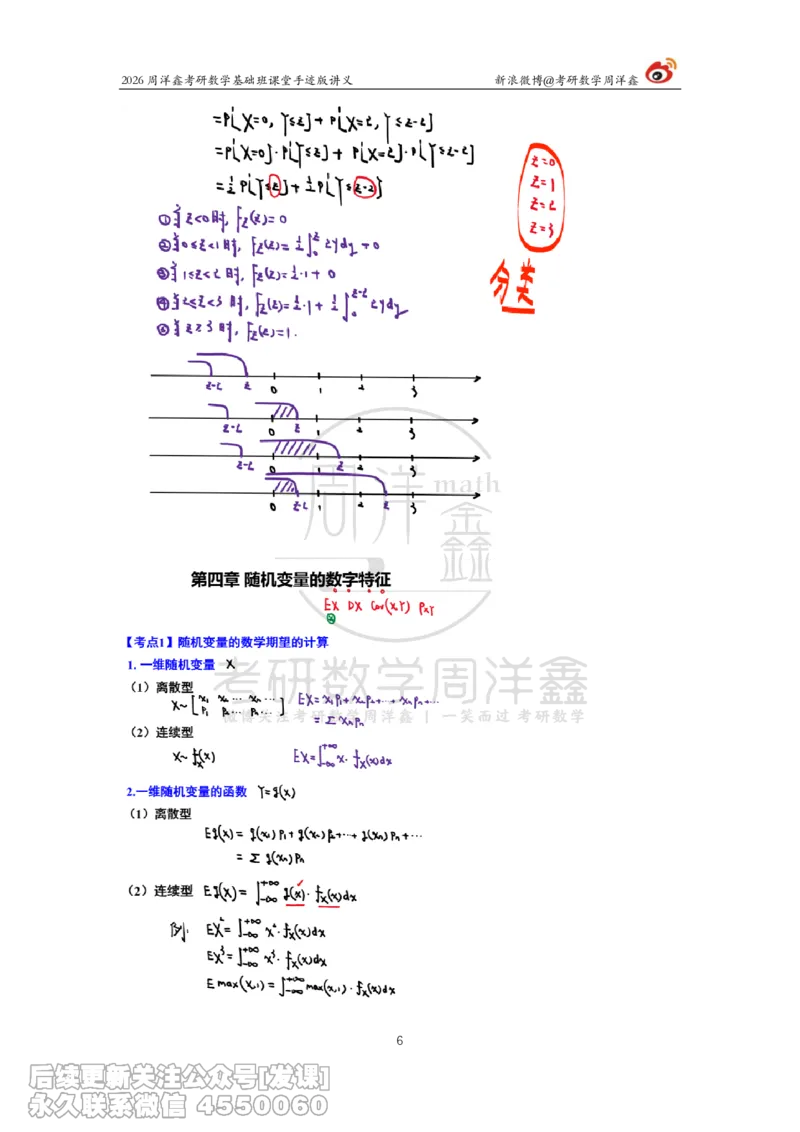 2026 周洋鑫考研数学基础班课堂手迹版讲义 新浪微博@考研数学周洋鑫
=P{X=0, Y≤z}+P{X=2, Y≤z-2}
=P{X=0}·P{Y≤z}+P{X=2}·P{Y≤z-2}
=½P{Y≤z}+½P{Y≤z-2}
z=0
z=1
z=2
z=3
①当z<0时, F_Z(z)=0
②当0≤z<1时, F_Z(z)=½∫₀^z 2ydy+0
③当1≤z<2时, F_Z(z)=½·1+0
④当2≤z<3时, F_Z(z)=½·1+½∫₀^{z-2} 2ydy
⑤当z≥3时, F_Z(z)=1.
分类
z-2 z 0 1 2 3
z-2 0 z 1 2 3
z-2 0 1 z 2 3
0 z-2 1 2 z 3
周洋鑫 math
第四章 随机变量的数字特征
EX DX Cov(X,Y) ρ_XY
【考点1】随机变量的数学期望的计算
1. 一维随机变量 X
（1）离散型
X~[x₁ x₂ ⋯ xₙ ⋯
p₁ p₂ ⋯ pₙ ⋯] EX=x₁p₁+x₂p₂+⋯+xₙpₙ+⋯
=Σxₙpₙ
考研数学周洋鑫
微博关注考研数学周洋鑫 | 一笑而过 考研数学
（2）连续型
X~f_X(x) EX=∫_{-∞}^{+∞} x·f_X(x)dx
2.一维随机变量的函数 Y=g(X)
（1）离散型
Eg(X)=g(x₁)p₁+g(x₂)p₂+⋯+g(xₙ)pₙ+⋯
=Σg(xₙ)pₙ
（2）连续型 Eg(X)=∫_{-∞}^{+∞} g(x)·f_X(x)dx
例: EX²=∫_{-∞}^{+∞} x²·f_X(x)dx
EX³=∫_{-∞}^{+∞} x³·f_X(x)dx
E max(X,1)=∫_{-∞}^{+∞} max(x,1)·f_X(x)dx
6
后续更新关注公众号[发课]
永久联系微信 4550060